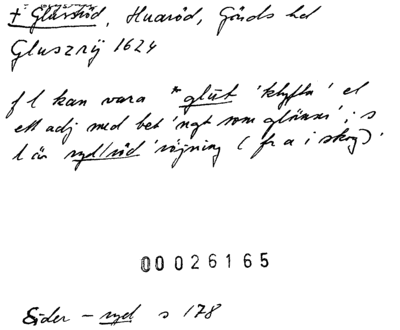 † Glusröd, Huaröd, Gärds hd
Gluszrÿ 1624
f l kan vara *glūt 'klyfta' el
ett adj med bet 'ngt som glänser'; s
l är ryd/röd 'röjning (fr a i skog)'.
00026165
Eider – ryd s 178